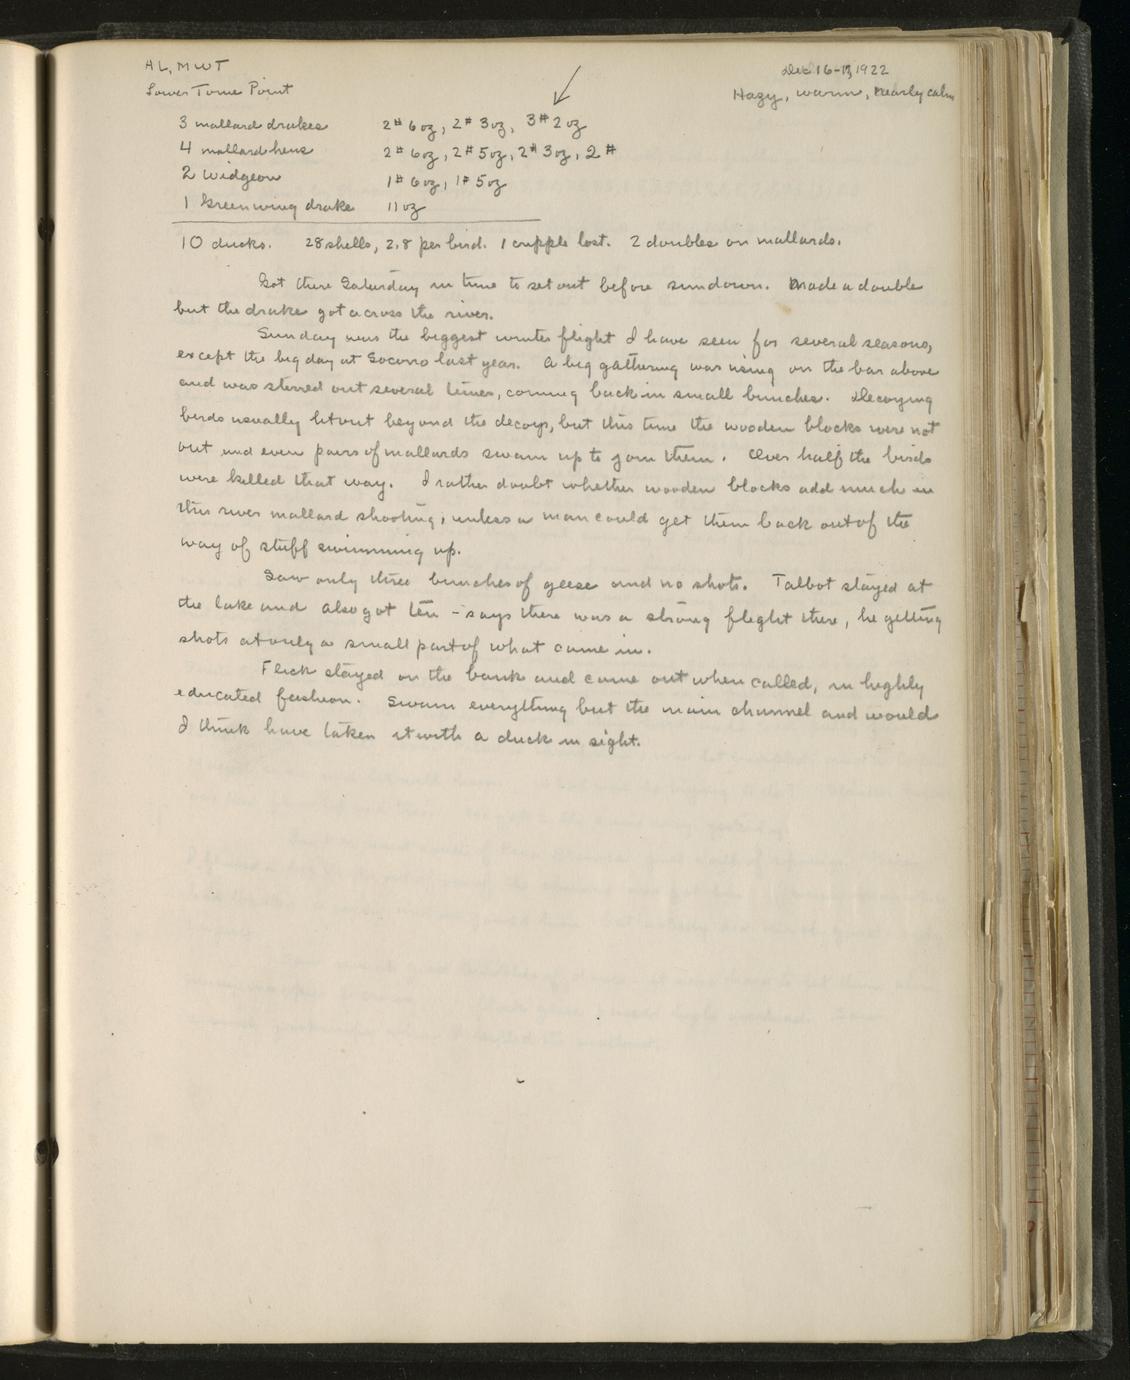 AL, MWT
Dec 16-17, 1922
Lower Tome Point
Hazy, warm, nearly calm
3 mallard drakes 2# 6oz, 2# 3oz, 3# 2oz
4 mallard hens 2# 6oz, 2# 5oz, 2# 3oz, 2#
2 Widgeon 1# 6oz, 1# 5oz
1 Greenwing drake 11oz
10 ducks. 28 shells, 2.8 per bird. 1 cripple lost. 2 doubles on mallards.
Got there Saturday in time to set out before sundown. Made a double
but the drake got across the river.
Sunday was the biggest winter flight I have seen for several seasons,
except the big day at Socorro last year. A big gathering was using on the bar above
and was stirred out several times, coming back in small bunches. Decoying
birds usually lit out beyond the decoys, but this time the wooden blocks were not
out and even pairs of mallards swam up to join them. Over half the birds
were killed that way. I rather doubt whether wooden blocks add much in
this river mallard shooting, unless a man could get them back out of the
way of stuff swimming up.
Saw only three bunches of geese and no shots. Talbot stayed at
the lake and also got ten - says there was a strong flight there, he getting
shots at only a small part of what came in.
Flick stayed on the bank and came out when called, in highly
educated fashion. Swam everything but the main channel and would
I think have taken it with a duck in sight.